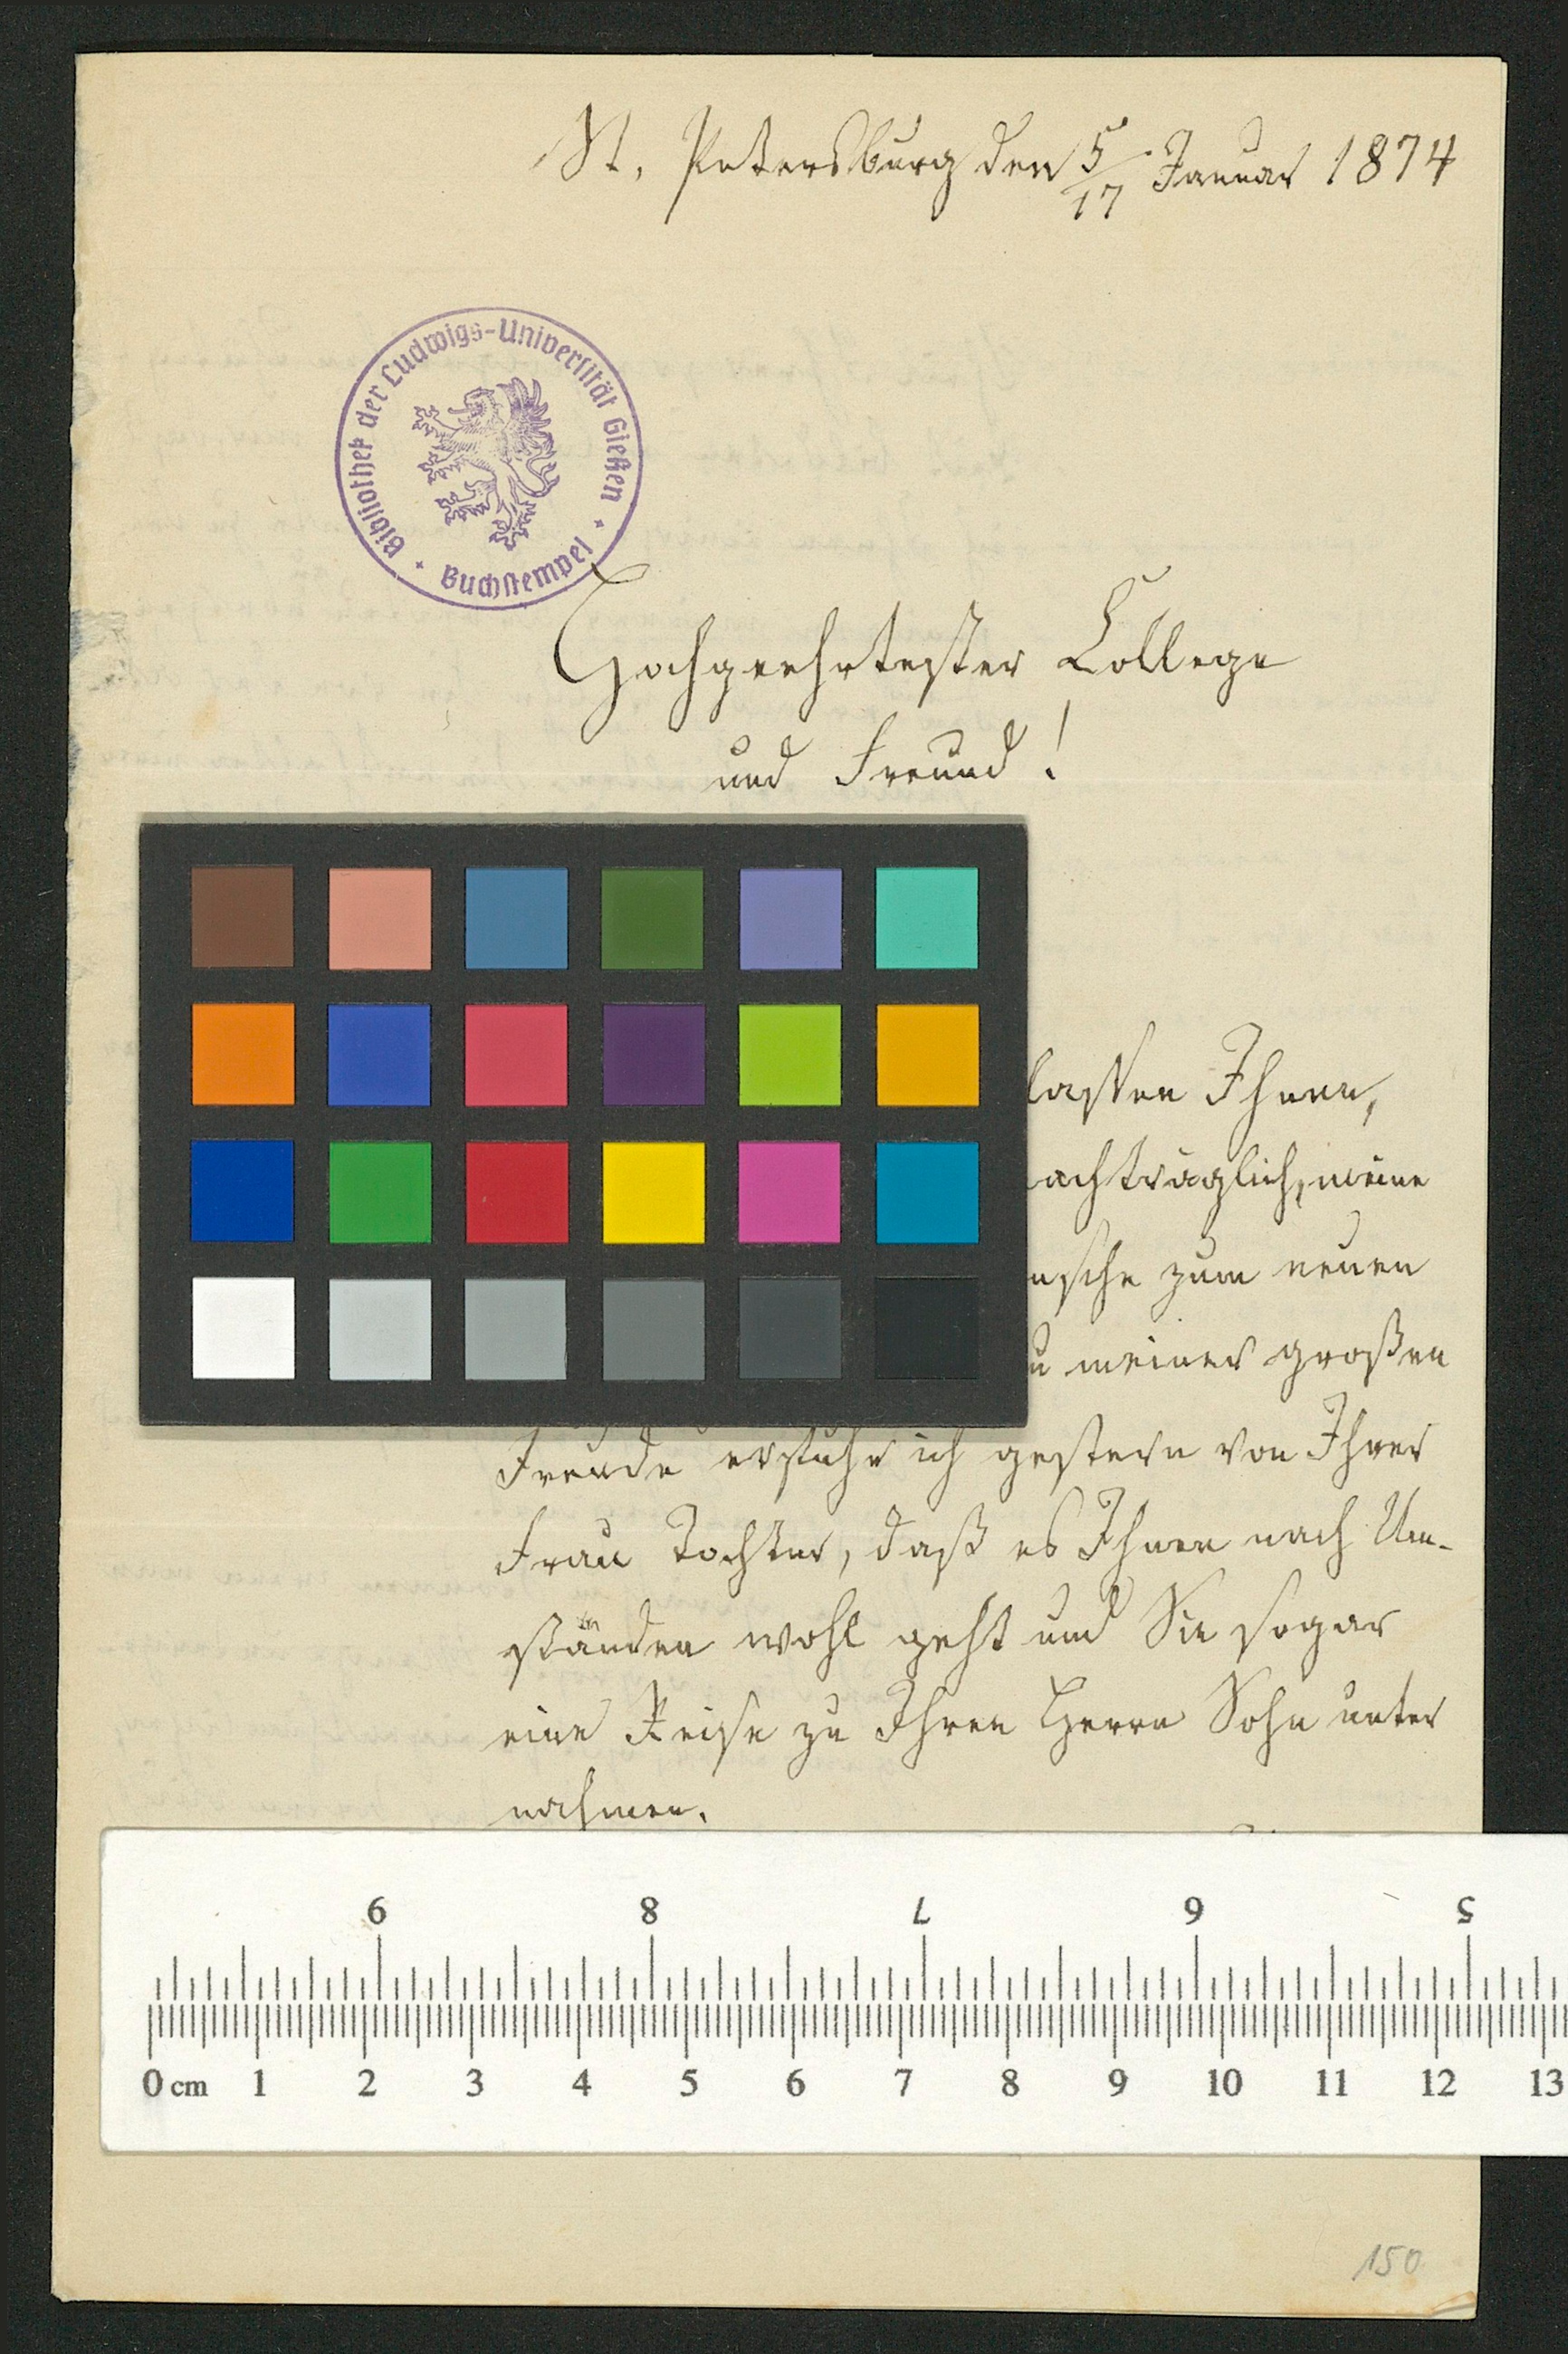 St. Petersburg den 5/17 Januar 1874
Bibliothek der Ludwigs-Universität Gießen
Buchstempel
Hochgeehrtester College
und Freund!
lassen Ihnen,
achträglich, meine
nsche zum neuen
u meiner großen
Freude erfuhr ich gestern von Ihrer
Frau Tochter, daß es Ihnen nach Um-
ständen wohl geht und Sie sogar
eine Reise zu Ihren Herrn Sohn unter
nahmen.
9 8 7 6 5
0 cm 1 2 3 4 5 6 7 8 9 10 11 12 13
150